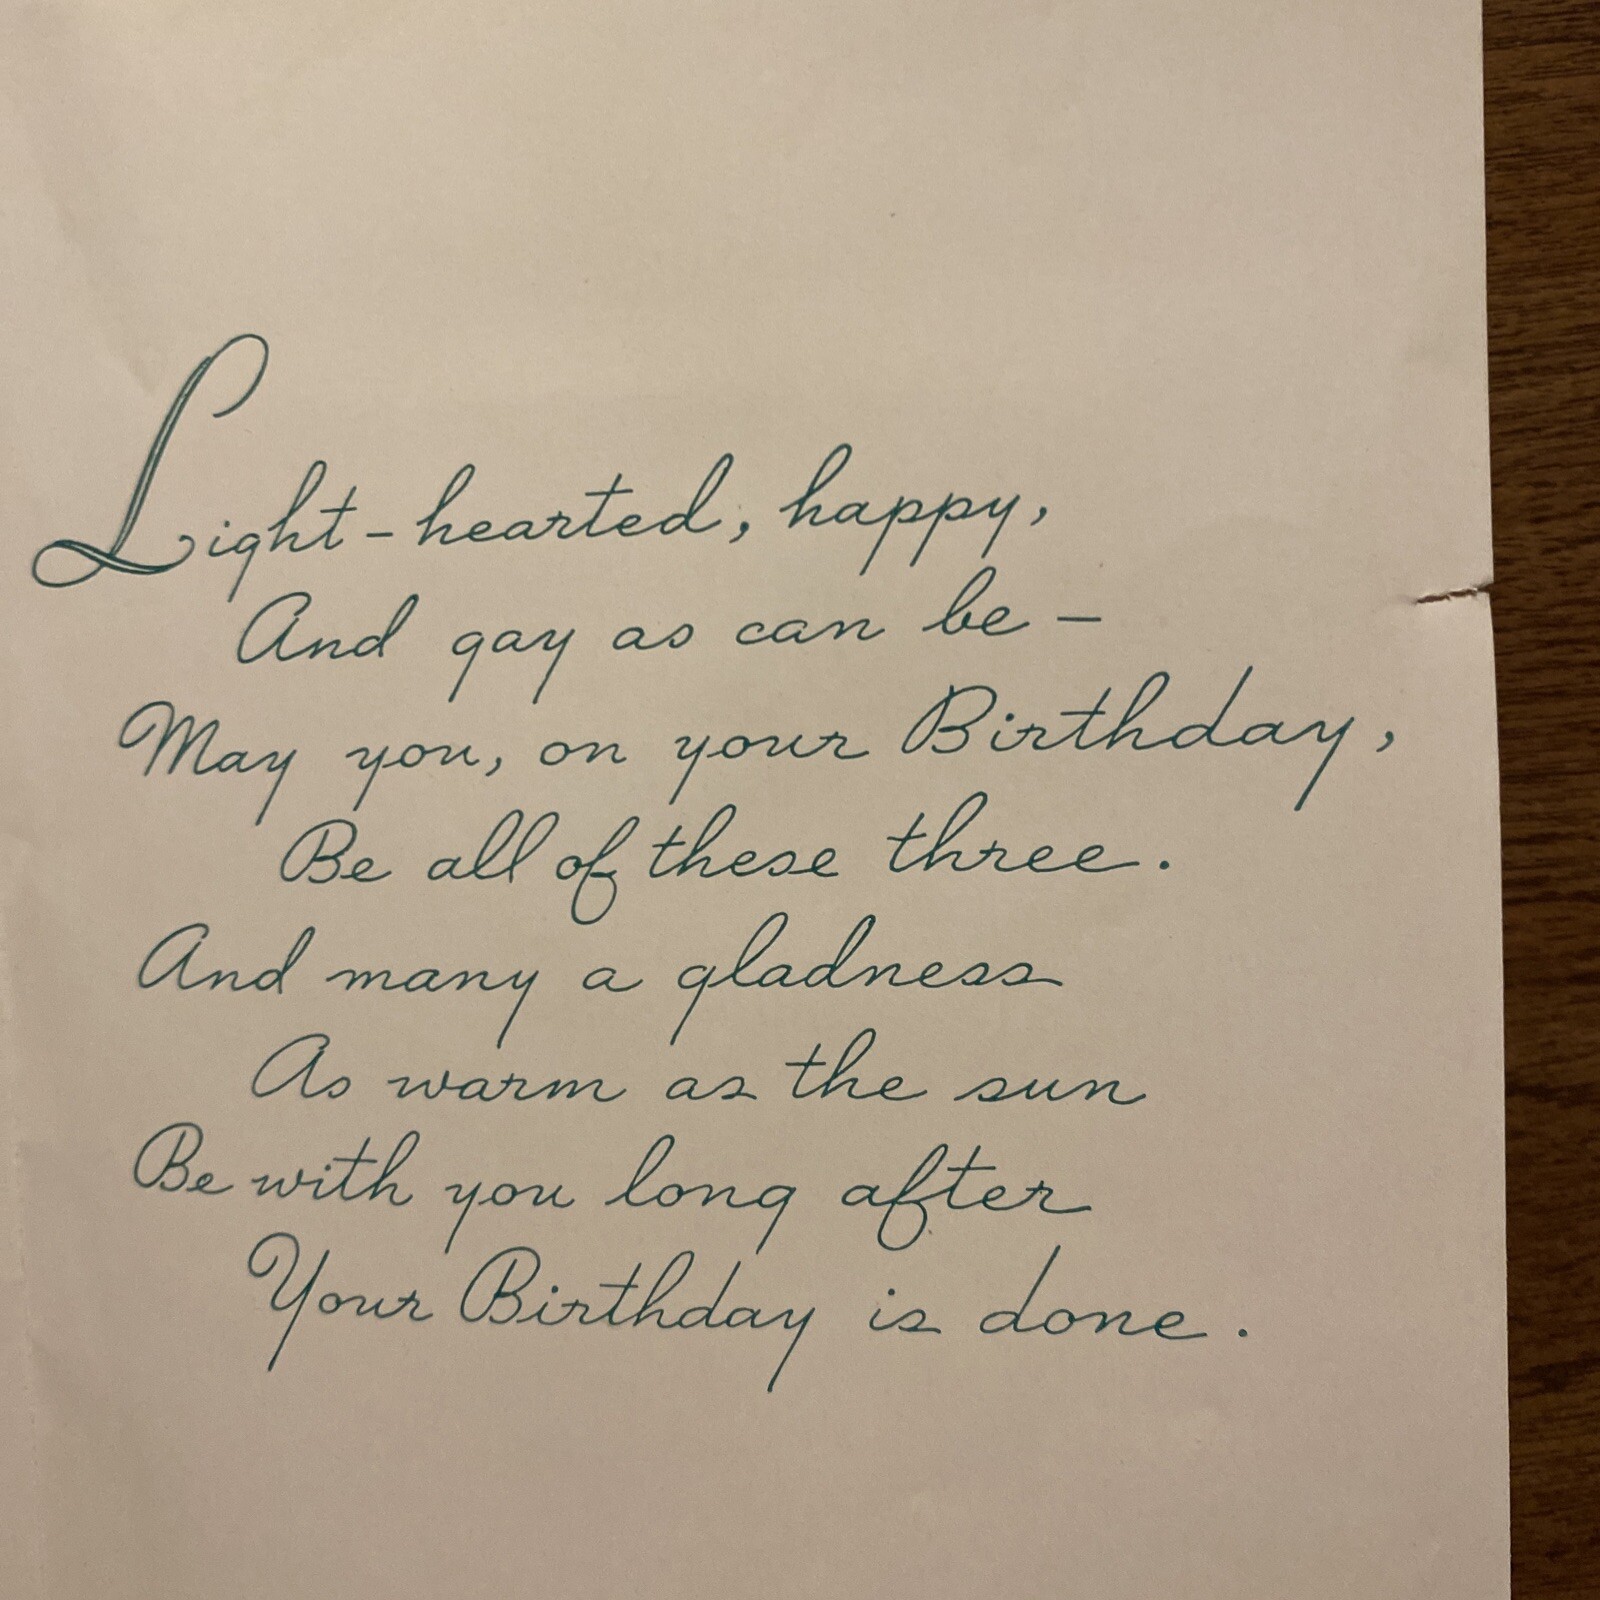 Light-hearted, happy,
And gay as can be –
May you, on your Birthday,
Be all of these three.
And many a gladness
As warm as the sun
Be with you long after
Your Birthday is done.